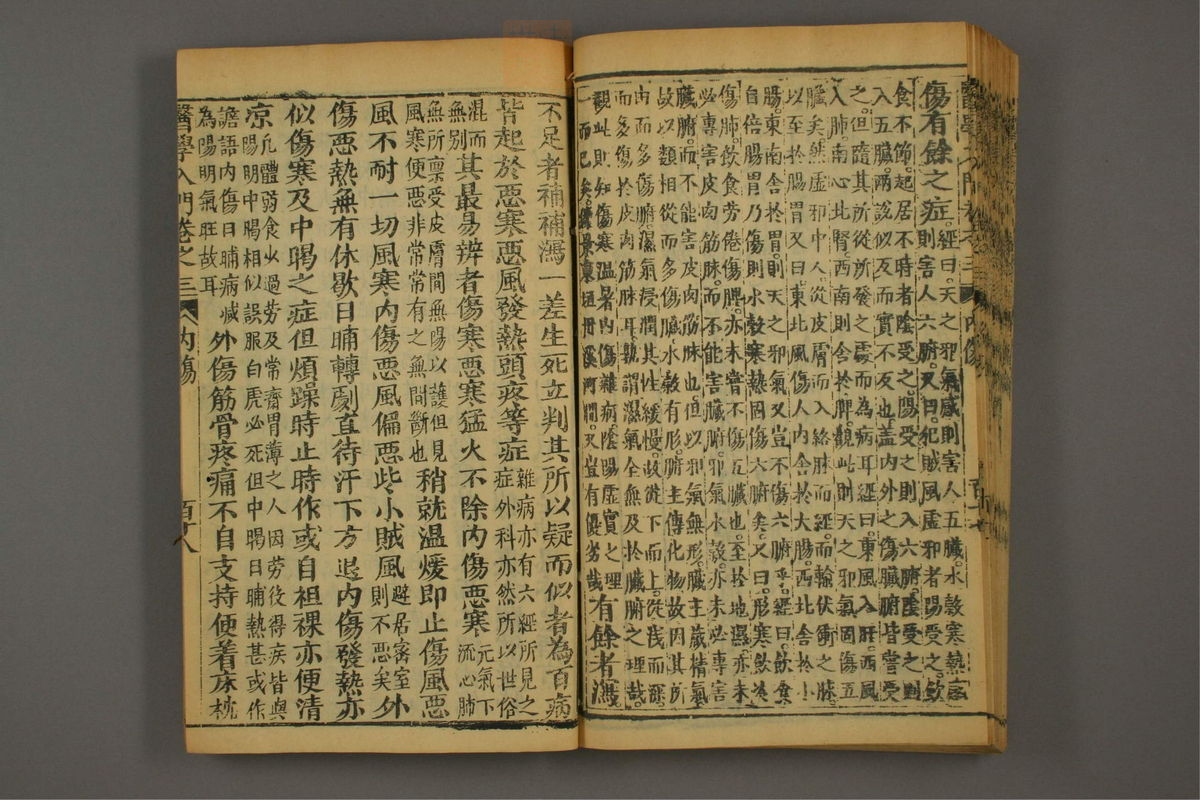 傷有餘之症經曰天之邪氣感則害人五臟水穀寒熱感
則害人六腑又曰犯賊風虛邪者陽受之飲
食不節起居不時者陰受之陽受之則入六腑陰受之則
入五臟兩說似反而實不反也蓋內外之傷臟腑皆嘗受
之但隨其所從所發之處而為病耳經曰東風入肝西風
入肺南心北腎西南則舍於脾觀此則天之邪氣固傷五
臟矣然虛邪中人從皮膚而入絡脉而經而輸伏衝之脉
以至於腸胃又曰東北風傷人內舍於大腸西北舍於小
腸東南舍於胃則天之邪氣又豈不傷六腑乎經曰飲食
自倍腸胃乃傷則水穀寒熱固傷六腑矣又曰形寒飲冷
傷肺飲食勞倦傷脾亦未嘗不傷五臟也至於地濕亦未
必專害皮肉筋脉而不能害臟腑邪氣水穀亦未必專害
臟腑而不能害皮肉筋脉也但以邪氣無形臟主藏精氣
故以類相從而多傷臟水穀有形腑主傳化物故因其所
由而多傷腑濕氣浸潤其性緩慢故從下而上從淺而深
而多傷於皮肉筋脉耳孰謂濕氣全無及於臟腑之理哉
觀此則知傷寒溫暑內傷雜病陰陽虛實之理
一而已矣
豈有優劣哉有餘者瀉
不足者補補瀉一差生死立判其所以疑而似者為百病
皆起於惡寒惡風發熱頭疼等症雜病亦有六經所見之
症外科亦然所以世俗
混而
無別其最易辨者傷寒惡寒猛火不除內傷惡寒元氣下
流心肺
無所禀受皮膚間無陽以護但見
風寒便惡非常常有之無間斷也稍就溫煖即止傷風惡
風不耐一切風寒內傷惡風偏惡些小賊風避居密室
則不惡矣外
傷惡熱無有休歇日晡轉劇直待汗下方退內傷發熱亦
似傷寒及中暍之症但煩躁時止時作或自袒裸亦便清
凉凡體弱食少過勞及常齋胃薄之人因勞役得疾皆與
陽明中暍相似誤服白虎必死但中暍日晡熱甚或作
譫語內傷日晡病減
為陽明氣旺故耳外傷筋骨疼痛不自支持便着床枕
醫學入門卷之三 內傷 百十八